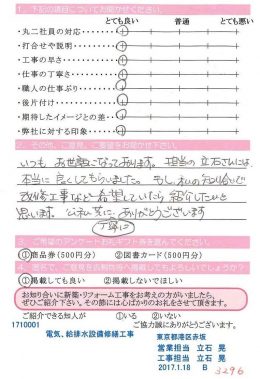 1. 下記の項目についてお聞かせください。
とても良い 普通 とても悪い
・丸二社員の対応・・・
・打合せや説明・・・・
・工事の早さ・・・・・
・仕事の丁寧さ・・・・
・職人の仕事ぶり・・・
・後片付け・・・・・・
・期待したイメージとの差・
・弊社に対する印象・・
2. その他、ご意見、ご要望をお聞かせ下さい。
いつも お世話になっております。担当の立石さんには、
本当に良くしてもらいました。もし、私の知り合いで
改修工事など希望していたら 紹介したいと
思います。公私共に ありがとうございます
(丁寧に)
3. ご希望のアンケートお礼ギフト券を選んでください。
①商品券(500円分) ②図書カード(500円分)
よろしいでしょうか?
①掲載しても良い ②掲載しないでほしい
お知り合いに新築・リフォーム工事をお考えの方がいましたら、
ぜひご紹介下さい。その節には心ばかりのお礼をさせて頂きます。
ご紹介できる知人が ①いる ②いない
1710001 ご協力誠にありがとうございます。
電気、給排水設備修繕工事 東京都港区赤坂
営業担当 立石 晃
工事担当 立石 晃
2017.1.18 B 3296